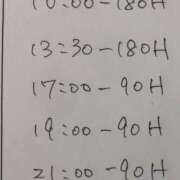 10:00-180H
13:30-180H
17:00-90H
19:00-90H
21:00-90H